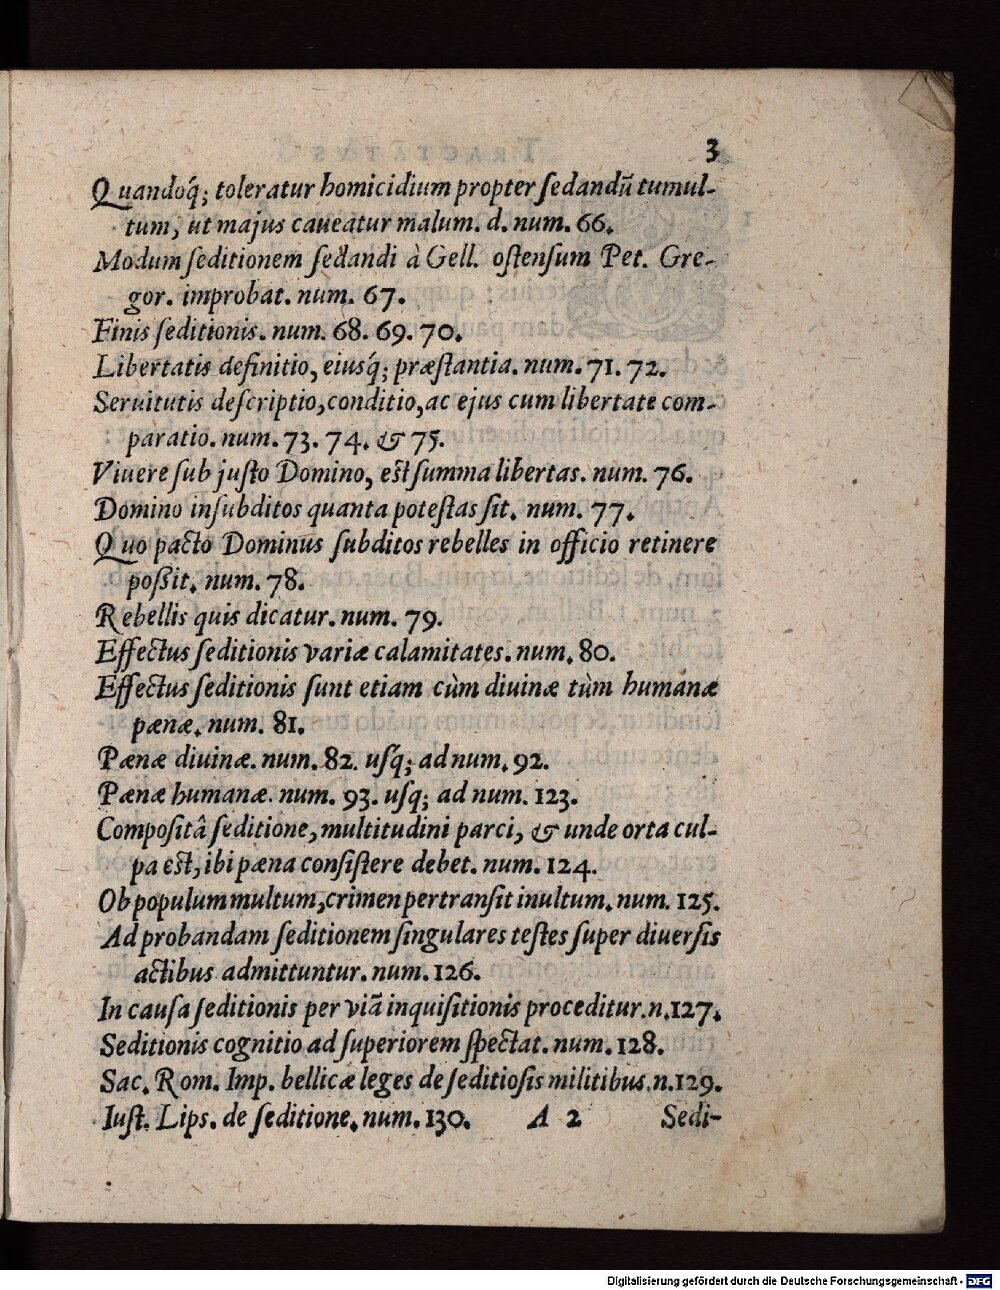 3
Quandoq́; toleratur homicidium propter ſedandū tumul-
tum, ut majus caueatur malum. d. num. 66.
Modum ſeditionem ſedandi à Gell. oſtenſum Pet. Gre-
gor. improbat. num. 67.
Finis ſeditionis. num. 68. 69. 70.
Libertatis definitio, eiusq́; præſtantia. num. 71. 72.
Seruitutis deſcriptio, conditio, ac ejus cum libertate com-
paratio. num. 73. 74. & 75.
Viuere ſub juſto Domino, eſt ſumma libertas. num. 76.
Domino in ſubditos quanta poteſtas ſit. num. 77.
Quo pacto Dominus ſubditos rebelles in officio retinere
poßit. num. 78.
Rebellis quis dicatur. num. 79.
Effectus ſeditionis variæ calamitates. num. 80.
Effectus ſeditionis ſunt etiam cùm diuinæ tùm humanæ
pænæ. num. 81.
Pænæ diuinæ. num. 82. uſq́; ad num. 92.
Pænæ humanæ. num. 93. uſq; ad num. 123.
Compoſitâ ſeditione, multitudini parci, & unde orta cul-
pa eſt, ibi pæna conſiſtere debet. num. 124.
Ob populum multum, crimen pertranſit inultum. num. 125.
Ad probandam ſeditionem ſingulares teſtes ſuper diuerſis
actibus admittuntur. num. 126.
In cauſa ſeditionis per viā inquiſitionis proceditur. n. 127.
Seditionis cognitio ad ſuperiorem ſpectat. num. 128.
Sac. Rom. Imp. bellicæ leges de ſeditioſis militibus. n. 129.
Iuſt. Lips. de ſeditione. num. 130. A 2 Sedi-
Digitalisierung gefördert durch die Deutsche Forschungsgemeinschaft - DFG